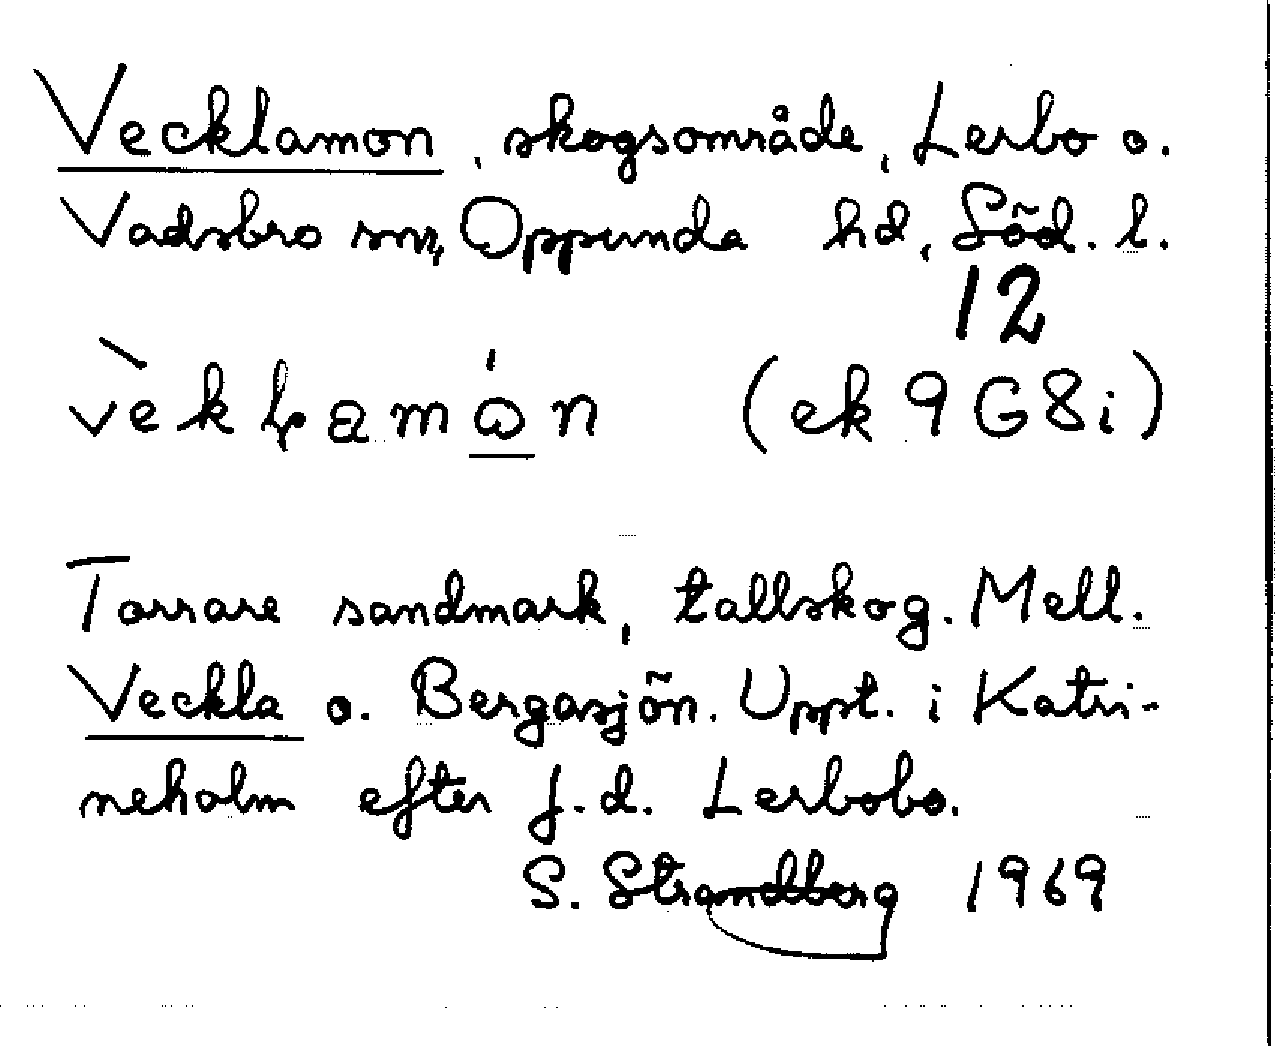 Vecklamon, skogsområde, Lerbo o.
Vadsbro snr, Oppunda hd, Söd. l.
12
(ek 9G8i)
Torrare sandmark, tallskog. Mell.
Veckla o. Bergasjön. Uppt. i Katri-
neholm efter f.d. Lerbobo.
S. Strandberg 1969